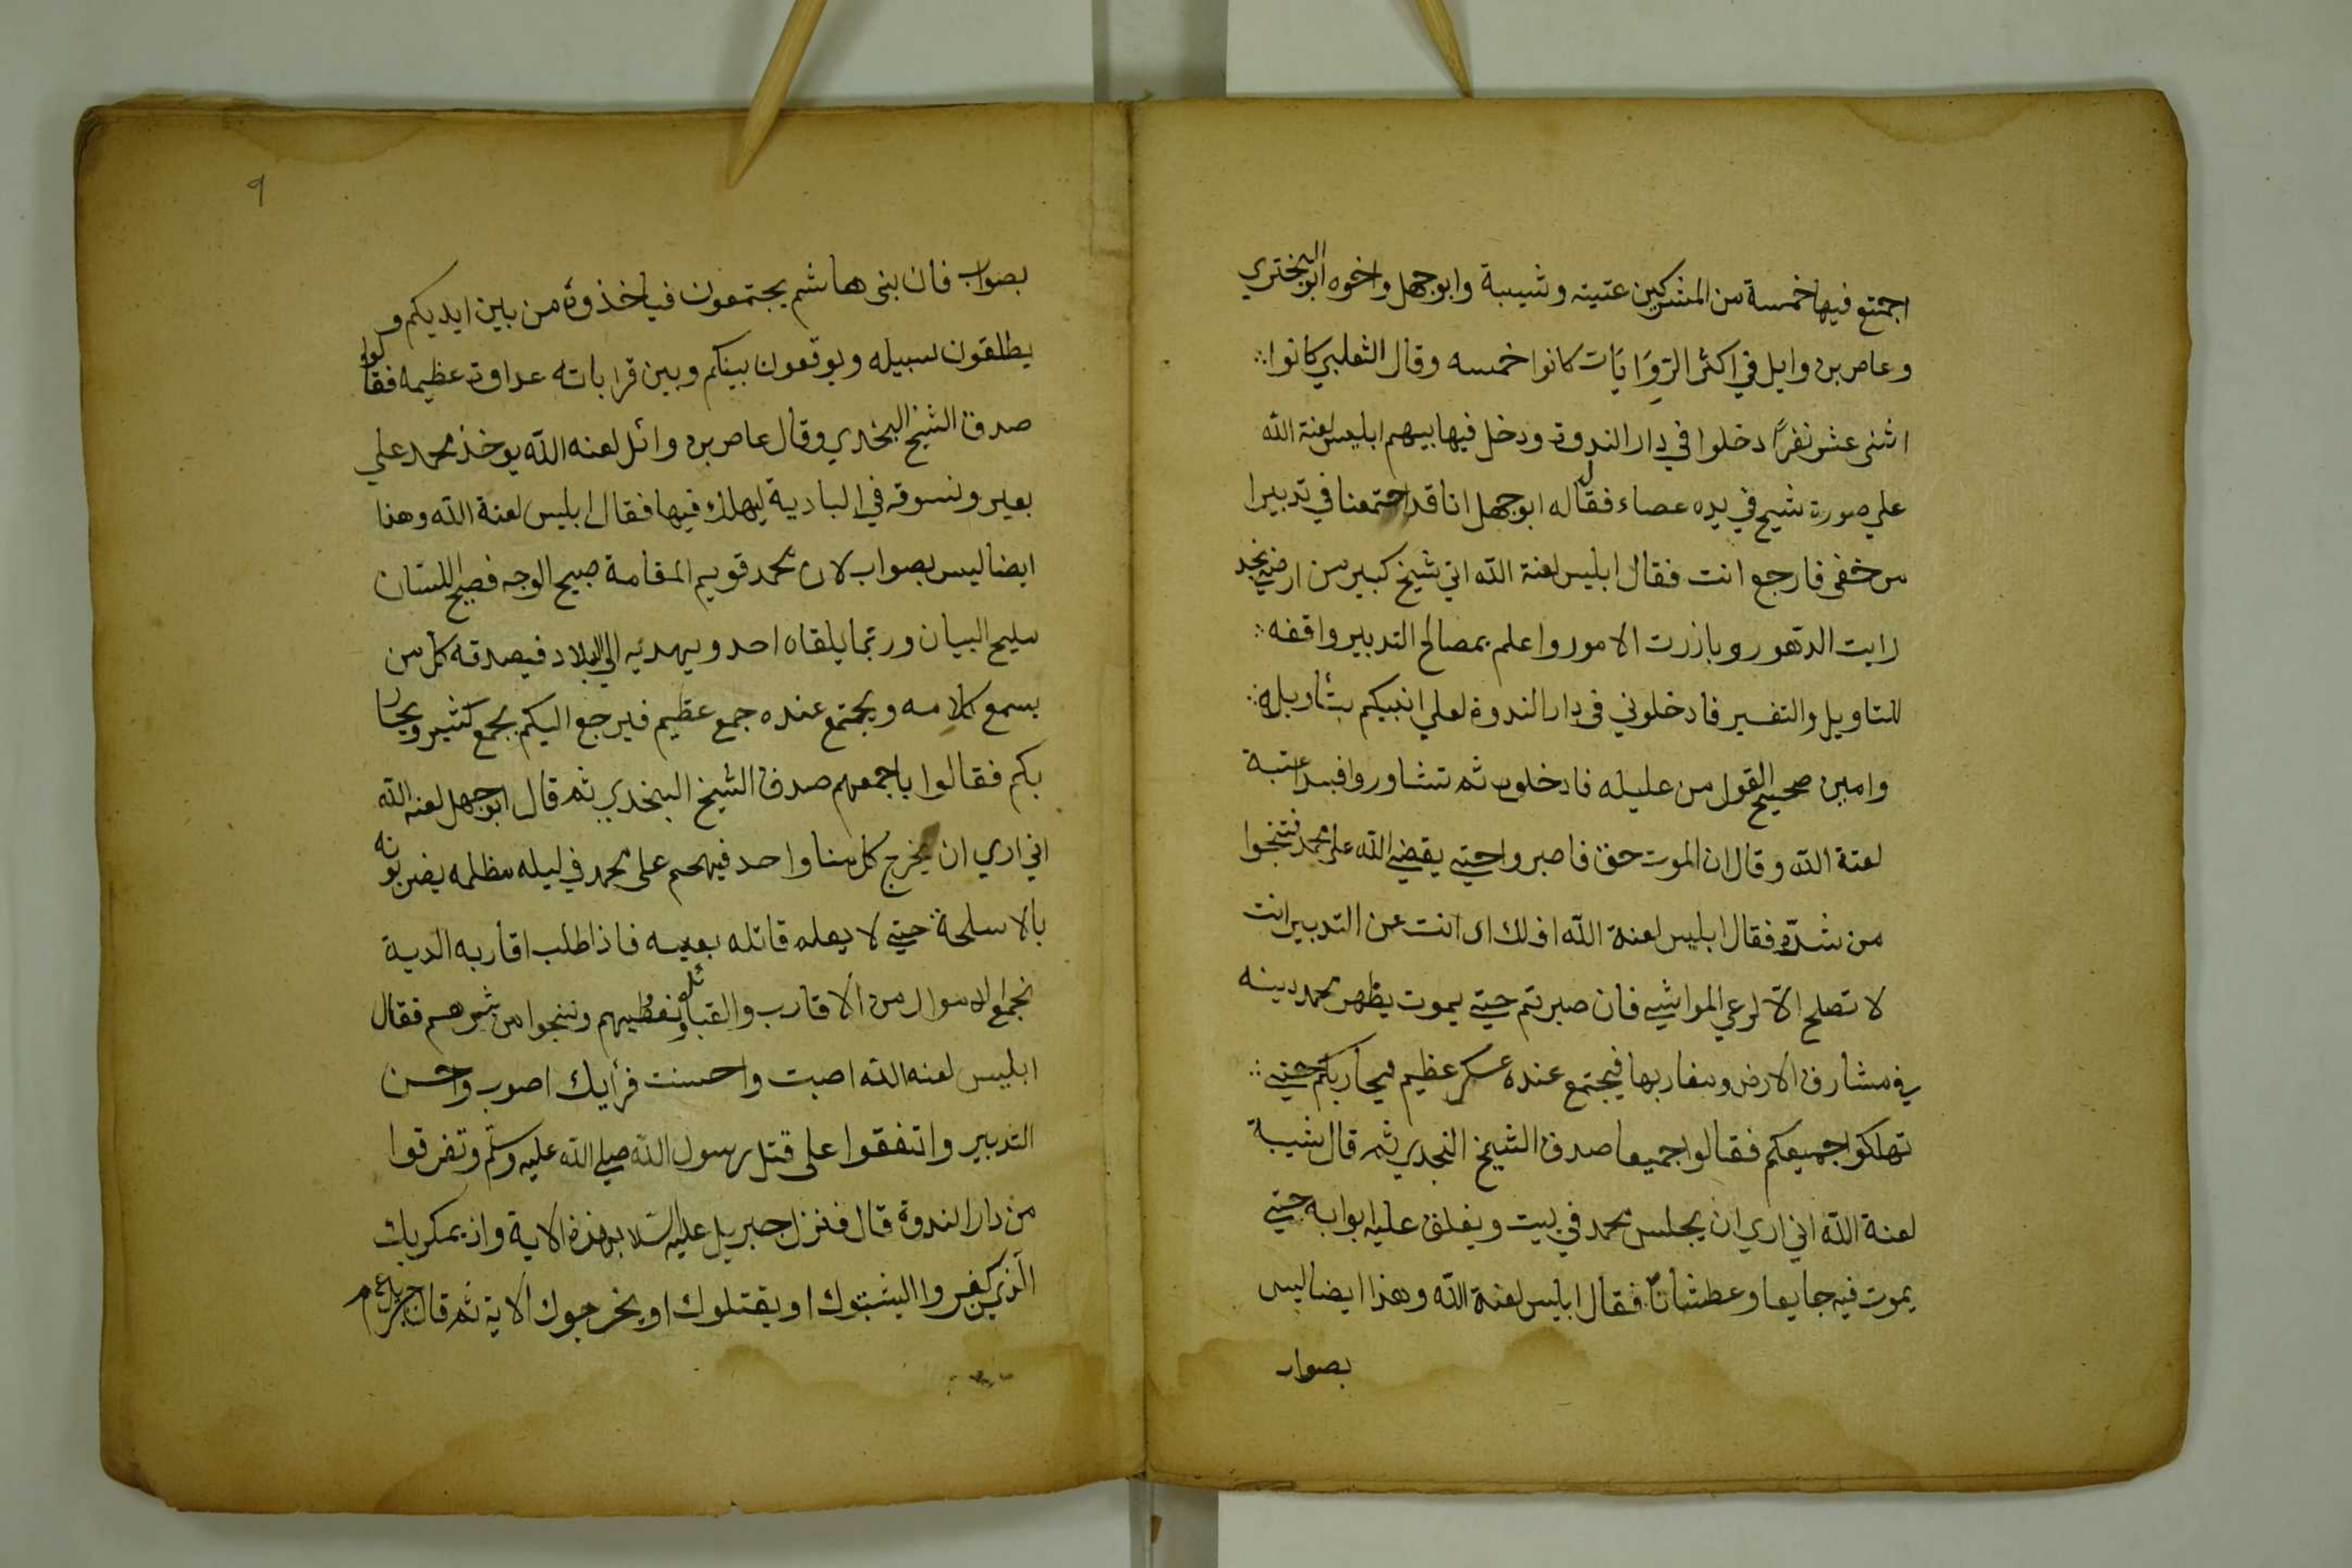 اجمتع فيها خمسة من المشركين عتيته وشيبة وابوجهل واخوه ابو البختري
وعاص بن وايل في اكثر الروايات كانوا خمسه وقال الثعلبي كانوا
اثنى عشر نفرًا دخلوا في دار الندوة ودخل فيها بيهم ابليس لعنة الله
علي صورة شيخ في يده عصاء فقال له ابوجهل انا قد اجتمعنا في تدبيرا
من خفى فارجع انت فقال ابليس لعنة الله اني شيخ كبير من ارض نجد
رايت الدهور وبازرت الامور واعلم بمصالح التدبير واقفه
للتاويل والتفسير فادخلوني في دار الندوة لعلي انبيكم بتأويله
وامين صحيح القول من عليله فادخلوه ثم تشاوروا فبدا عتبة
لعنة الله وقال ان الموت حق فاصبروا حتي يقضي الله على محمد فتنجوا
من شره فقال ابليس لعنة الله اف لك اى انت عن التدبير انت
لا تصلح الّا لرعي المواشي فان صبرتم حتي يموت يظهر محمد دينه
في مشارق الارض ومغاربها فيجتمع عنده عسكر عظيم فيحاربكم حتي
تهلكوا جميعكم فقالوا جميعا صدق الشيخ النجدي ثم قال شيبة
لعنة الله اني اري ان يجلس محمد في بيت ويغلق عليه ابوابه حتي
يموت فيه جايعا وعطشانًا فقال ابليس لعنة الله وهذا ايضا ليس
بصواب
٩
بصواب فان بنى هاشم يجتمعون فياخذوه من بين ايديكم و
يطلقون سبيله ويوقعون بينكم وبين قراباته عداوة عظيمه فقالوا
صدق الشيخ البخدي وقال عاص بن وائل لعنه الله يوخذ محمد علي
بعير ونسوقه في البادية ليهلك فيها فقال ابليس لعنة الله وهذا
ايضا ليس بصواب لان محمد قويم المقامة صبيح الوجه فصيح اللسان
مليح البيان وربما يلقاه احد ويهديه الي البلاد فيصدقه كل من
يسمع كلامه ويجتمع عنده جمع عظيم فيرجع اليكم بجمع كثير ويحار
بكم فقالوا باجمعهم صدق الشيخ البخدي ثم قال ابوجهل لعنه الله
اني اري ان يخرج كل منا واحد فيهجم على محمد في ليله مظلمه يضربونه
بالاسلحة حتي لا يعلم قاتله بعينه فاذا طلب اقاربه الدية
نجمع الاموال من الاقارب والقبائل ونعطيهم وننجوا من شرهم فقال
ابليس لعنه الله اصبت واحسنت فرأيك اصوب واحسن
التدبير واتفقوا على قتل رسول الله صلي الله عليه وسلم وتفرقوا
من دار الندوة قال فنزل جبريل عليه السلام بهذه الاية واذ يمكر بك
الذين كفروا اليثبتوك او يقتلوك او يخرجوك الاية ثم قال جبريل ع م